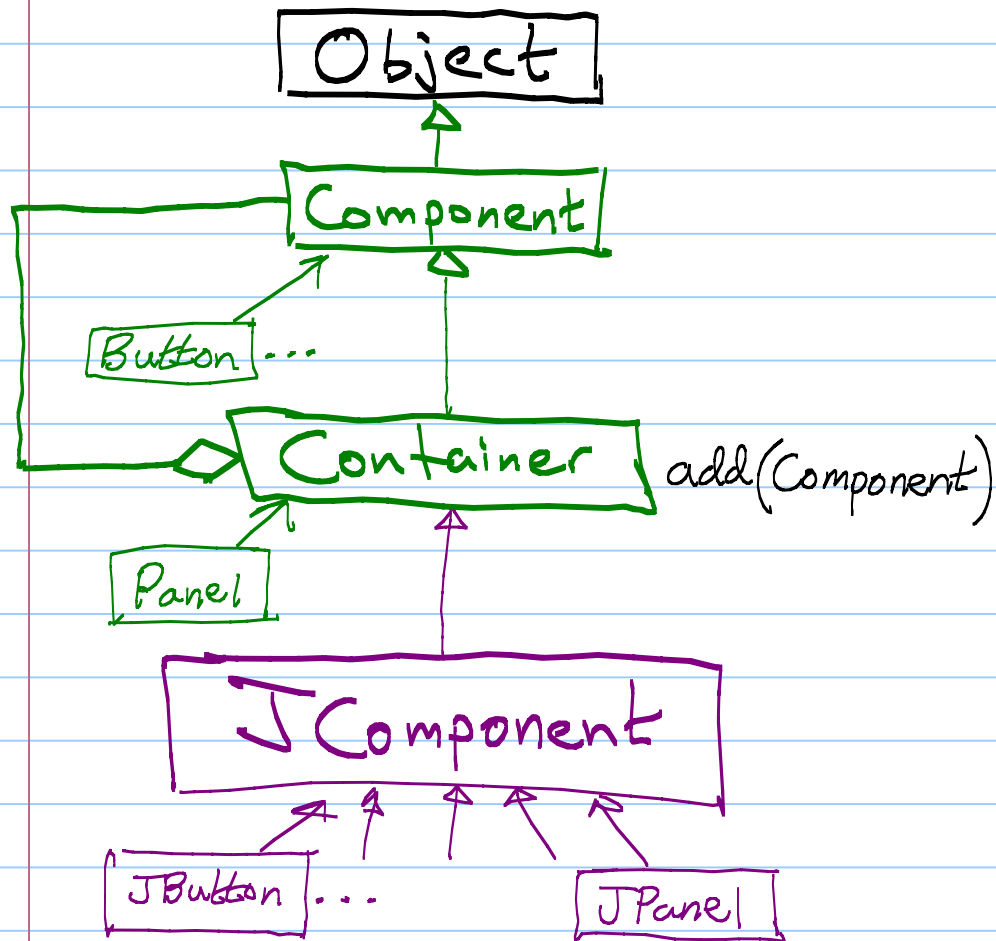 Object
Component
Button ...
Container
add(Component)
Panel
JComponent
JButton ...
JPanel